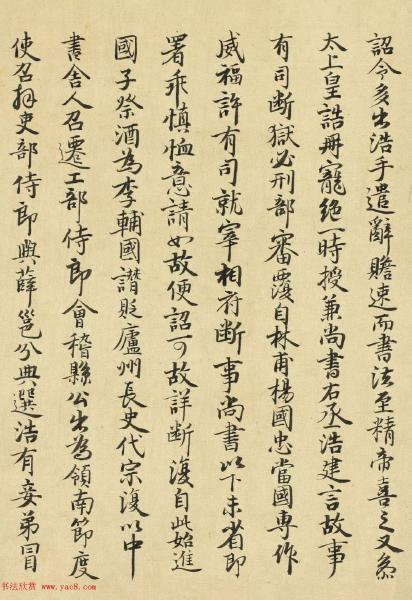 詔令多出浩手遣辭贍速而書法至精帝喜之又叅
太上皇誥冊寵絕一時授兼尚書右丞浩建言故事
有司断獄必刑部審覆自林甫楊國忠當國專作
威福許有司就宰相府断事尚書以下未省即
署乖慎恤意請如故便詔可故詳断復自此始進
國子祭酒為李輔國譖貶廬州長史代宗復以中
書舍人召遷工部侍郎會稽縣公出為領南節度
使召拜吏部侍郎與薛邕分典選浩有妾弟冒
书法欣赏 www.yac8.com